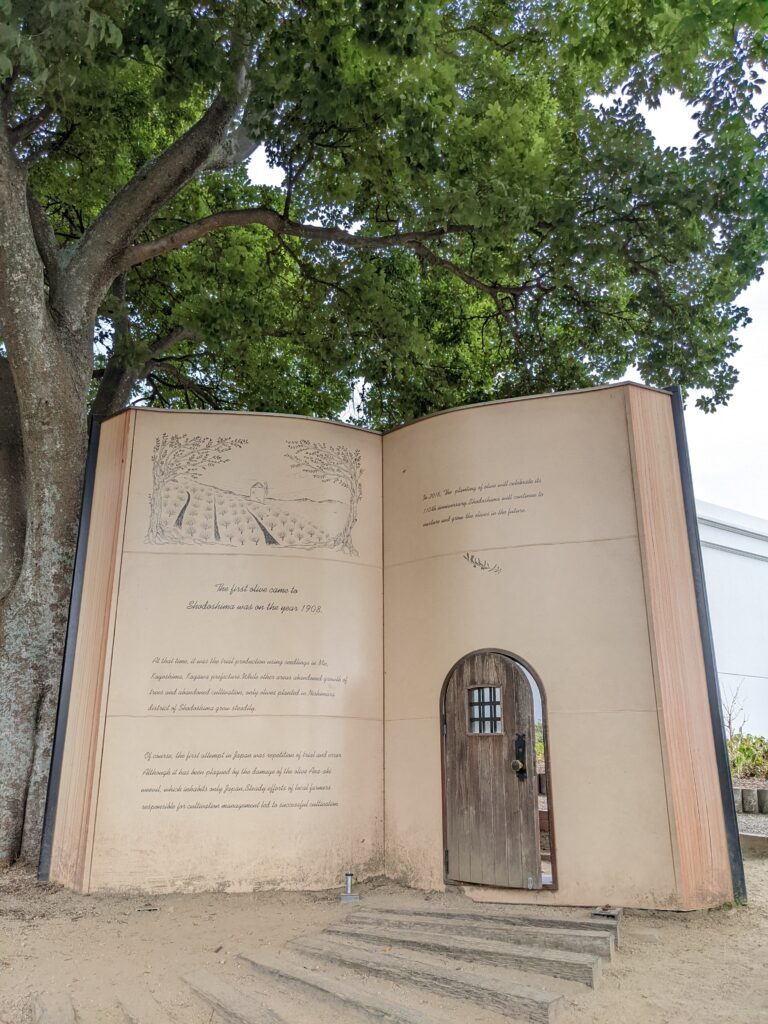 The first olive came to
Shodoshima was on the year 1908.
At that time, it was the trial production using seedlings in Me,
Kagoshima, Kagawa prefecture. While other areas abandoned growth of
trees and abandoned cultivation, only olives planted in Nishimura
district of Shodoshima grew steadily.
Of course, the first attempt in Japan was repetition of trial and error.
Although it has been plagued by the damage of the olive Ana-aki
weevil, which inhabits only Japan. Steady efforts of local farmers
responsible for cultivation management led to successful cultivation
In 2018, The planting of olive will celebrate its
110th anniversary. Shodoshima will continue to
nurture and grow the olives in the future.